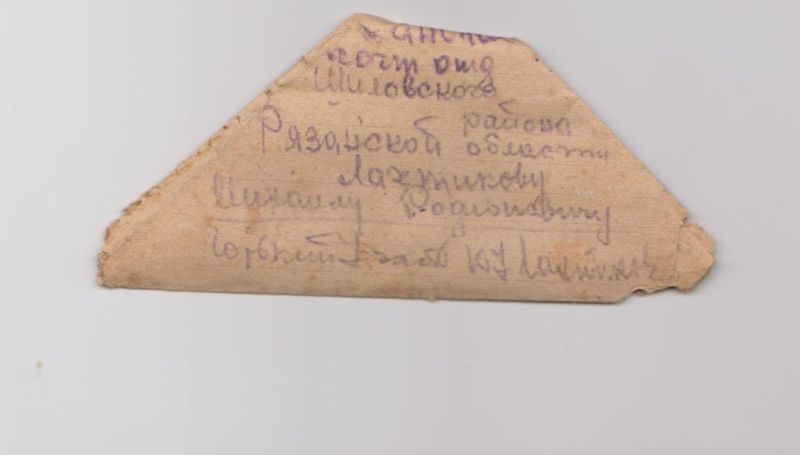 почт отд
Шиловского
района
Рязанской области
Лахтикову
Михаилу Родионовичу
Горький